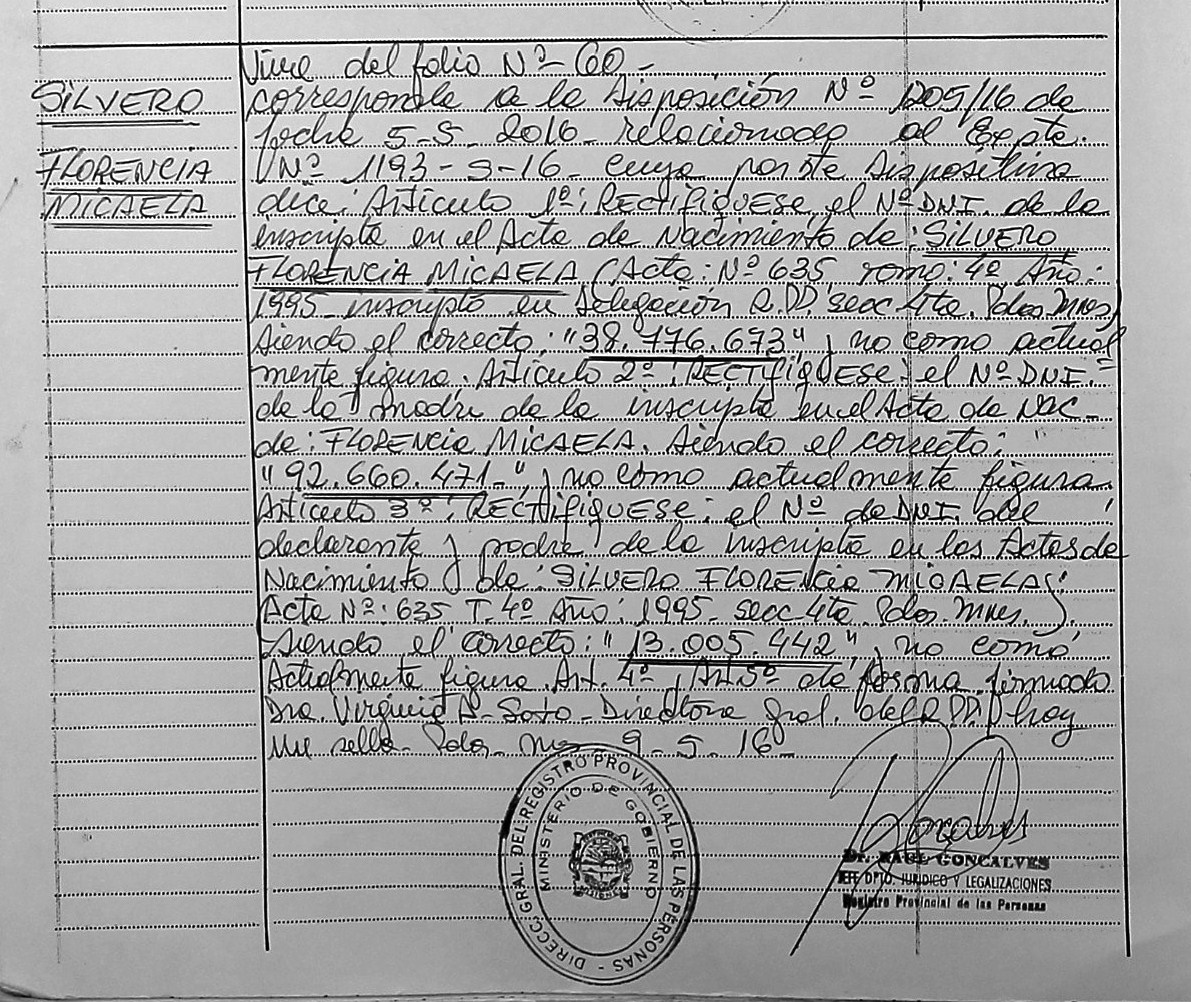 Viene del folio Nº 60-
SILVERO
corresponde a la Disposición Nº 1205/16 de
fecha 5-5-2016- relacionado al Expte.
FLORENCIA
Nº 1193-S-16- cuya parte Dispositiva
MICAELA
dice: Artículo 1º: RECTIFIQUESE, el NºDNI. de la
inscripta en el Acta de Nacimiento de: SILVERO
FLORENCIA MICAELA (Acta: Nº 635, Tomo: 4º Año:
1995- inscripto en Delegación R.PP. secc 4ta. Pdas. Mnes)
siendo el correcto: "38.776.673", y no como actual
mente figura. Artículo 2º: RECTIFIQUESE: el Nº DNI.
de la madre de la inscripta en el Acta de Nac-
de: FLORENCIA MICAELA. Siendo el correcto:
"92.660.471-", y no como actualmente figura.
Artículo 3º: RECTIFIQUESE: el Nº de DNI. del
declarante y padre de la inscripta en las Actas de
Nacimiento de: SILVERO FLORENCIA MICAELAS:
Acta Nº: 635 T. 4º Año: 1995- secc 4ta Pdas. Mnes.)
siendo el correcto: "13.005.442", y no como
Actualmente figura. Art. 4º, Art.5º de forma. firmado
Dra. Virginia Soto- Directora Gral. del R.PP. hay
un sello- Pdas. Mnes 9-5-16-
DIRECC. GRAL. DEL REGISTRO PROVINCIAL DE LAS PERSONAS -
MINISTERIO DE GOBIERNO
MISIONES
Dr. RAUL GONCALVES
JEFE DPTO. JURIDICO Y LEGALIZACIONES
Registro Provincial de las Personas